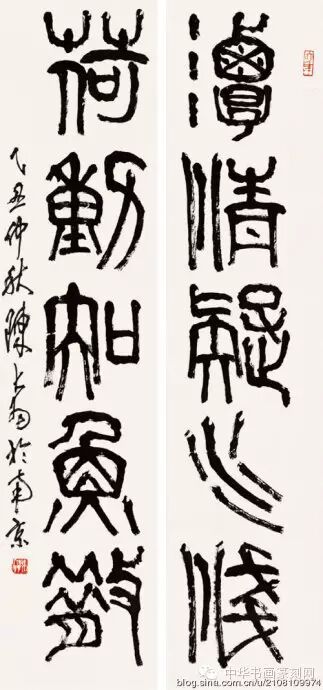 潭清疑水淺
荷動知魚散
乙丑仲秋陳大羽於南京
中华书画篆刻网
blog.sina.com.cn/u/2108109974